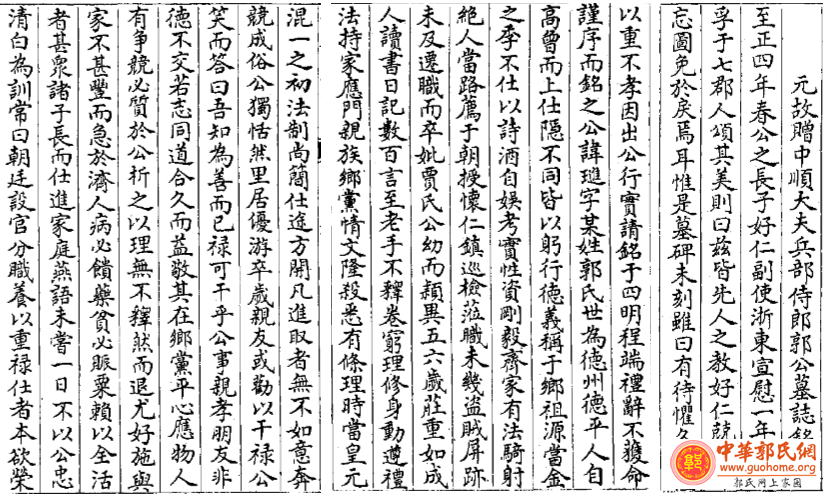 元故贈中順大夫兵部侍郎郭公墓誌銘
至正四年春公之長子好仁副使浙東宣慰一年
孚于七郡人頌其美則曰兹皆先人之教好仁兢
忘圖免於戾焉耳惟是墓碑未刻雖曰有待懼久
以重不孝因出公行實請銘于四明程端禮辭不獲命
謹序而銘之公諱璡字某姓郭氏世為德州德平人自
高曾而上仕隱不同皆以躬行德義稱于鄉祖源當金
之季不仕以詩酒自娛考實性資剛毅齊家有法騎射
絶人當路薦于朝授懷仁鎮巡檢蒞職未幾盜賊屏跡
未及遷職而卒妣賈氏公幼而穎異五六歲莊重如成
人讀書日記數百言至老手不釋卷窮理修身動遵禮
法持家應門親族鄉黨情文隆殺悉有條理時當皇元
混一之初法制尚簡仕進方開凡進取者無不如意奔
競成俗公獨恬然里居優游卒歲親友或勸以干禄公
笑而答曰吾知為善而已禄可干乎公事親孝朋友非
德不交若志同道合久而益敬其在鄉黨平心應物人
有争競必質於公析之以理無不釋然而退尤好施與
家不甚豐而急於濟人病必饋藥貧必賑粟賴以全活
者甚衆諸子長而仕進家庭燕語未嘗一日不以公忠
清白為訓常曰朝廷設官分職養以重禄仕者本欲榮
中華郭氏網
www.guohome.org
郭氏网上家园